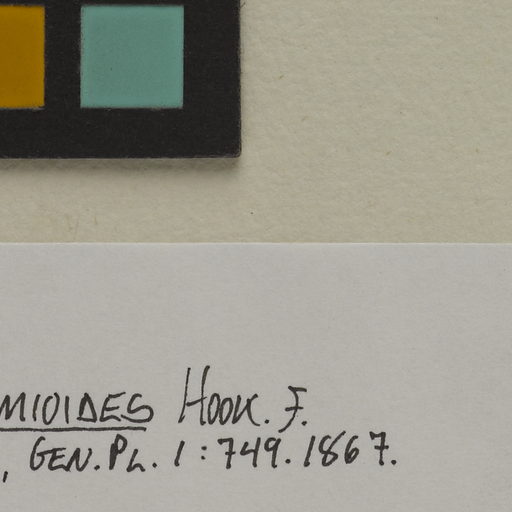 MIOIDES HOOK. F.
, GEN. PL. 1 : 749. 1867.